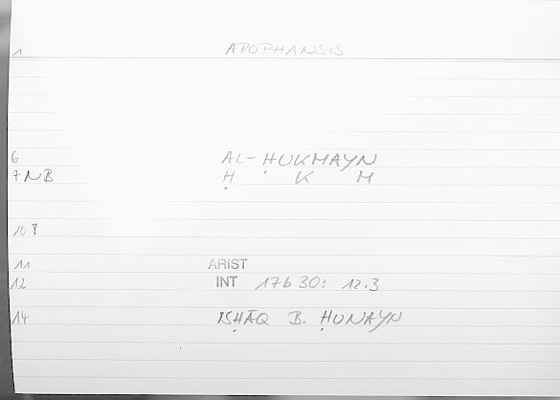 1 APOPHANSIS
6 AL-ḤUKMAYN
7 NB Ḥ K M
10 !
11 ARIST
12 INT 17b 30: 12.3
14 ISḤĀQ B. ḤUNAYN